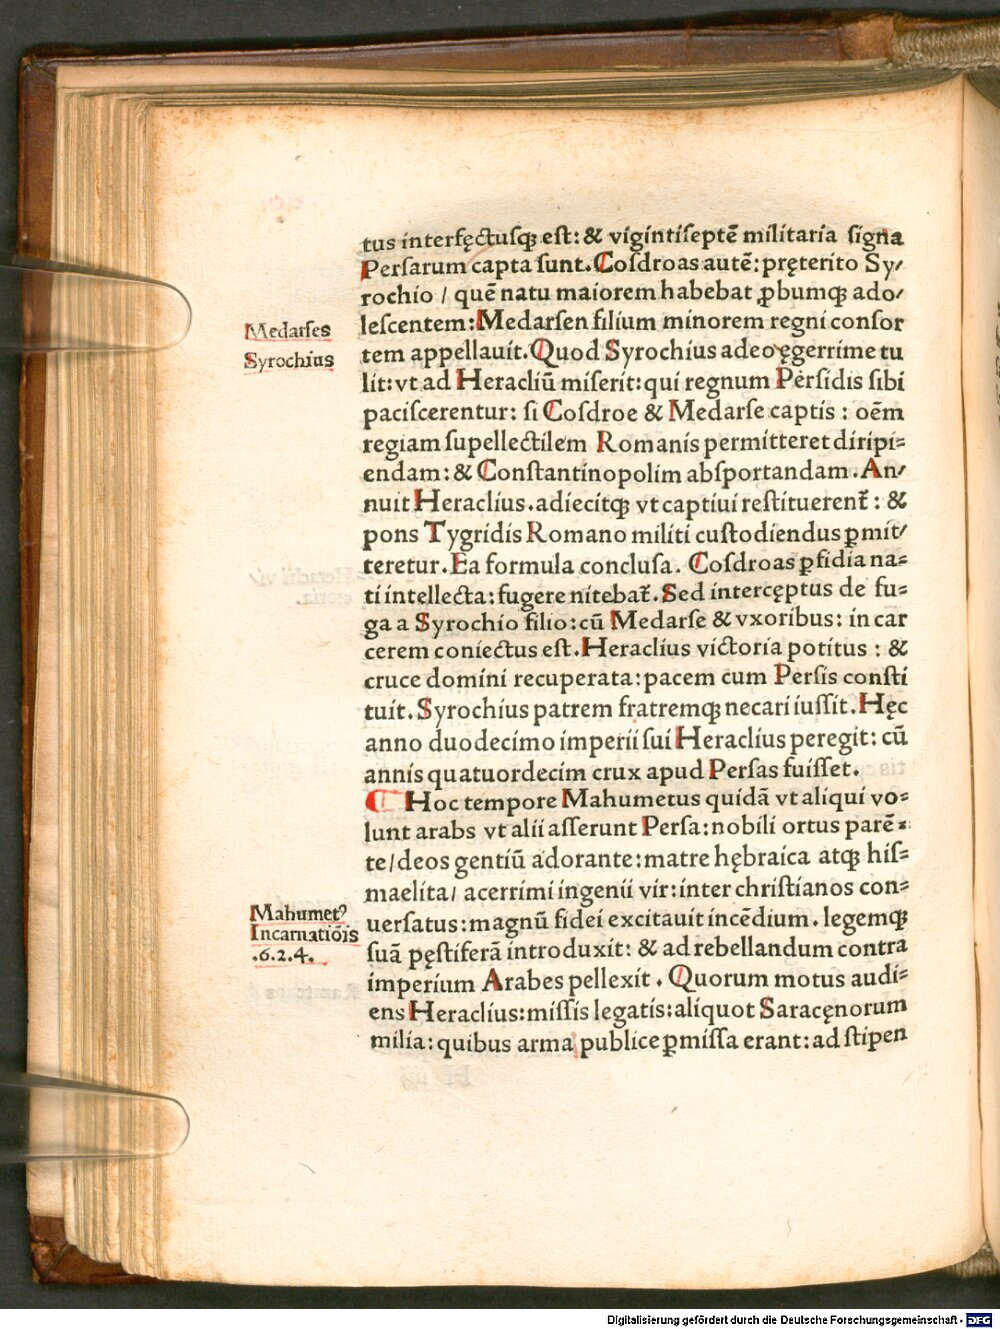 tus interfęctusqꝫ est: & vigintiseptē militaria signa
Persarum capta sunt. Cosdroas autē: pręterito Sy/
rochio / quē natu maiorem habebat ꝓbumqꝫ ado/
lescentem: Medarsen filium minorem regni consor
Medarses
tem appellauit. Quod Syrochius adeo ęgerrime tu
Syrochius
lit: vt ad Heracliū miserit: qui regnum Persidis sibi
paciscerentur: si Cosdroe & Medarse captis : oēm
regiam supellectilem Romanis permitteret diripi=
endam: & Constantinopolim absportandam. An/
nuit Heraclius. adiecitqꝫ vt captiui restituerent̃ : &
pons Tygridis Romano militi custodiendus ꝑmit/
teretur. Ea formula conclusa. Cosdroas ꝑfidia na=
ti intellecta: fugere nitebat̃. Sed intercęptus de fu=
ga a Syrochio filio: cū Medarse & vxoribus: in car
cerem coniectus est. Heraclius victoria potitus : &
cruce domini recuperata: pacem cum Persis consti
tuit. Syrochius patrem fratremqꝫ necari iussit. Hęc
anno duodecimo imperii sui Heraclius peregit: cū
annis quatuordecim crux apud Persas fuisset.
¶ Hoc tempore Mahumetus quidā vt aliqui vo=
lunt arabs vt alii asserunt Persa: nobili ortus parē=
te/ deos gentiū adorante: matre hębraica atqꝫ his=
maelita/ acerrimi ingenii vir: inter christianos con=
Mahumetꝰ
uersatus: magnū fidei excitauit incēdium. legemqꝫ
Incarnatiōis
suā pęstiferā introduxit: & ad rebellandum contra
.6.2.4.
imperium Arabes pellexit . Quorum motus audi=
ens Heraclius: missis legatis: aliquot Saracęnorum
milia: quibus arma publice ꝑmissa erant: ad stipen
Digitalisierung gefördert durch die Deutsche Forschungsgemeinschaft - DFG